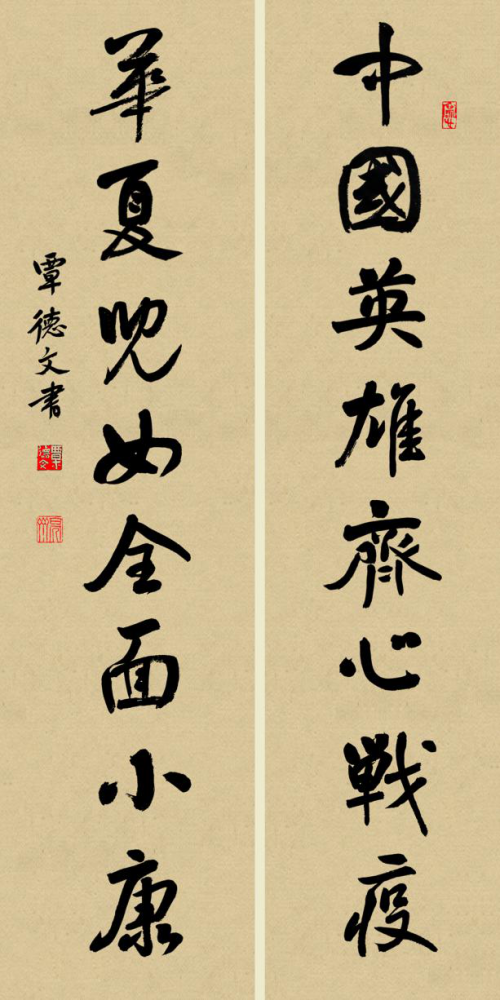 中國英雄齊心戰疫
華夏兒女全面小康
覃德文書